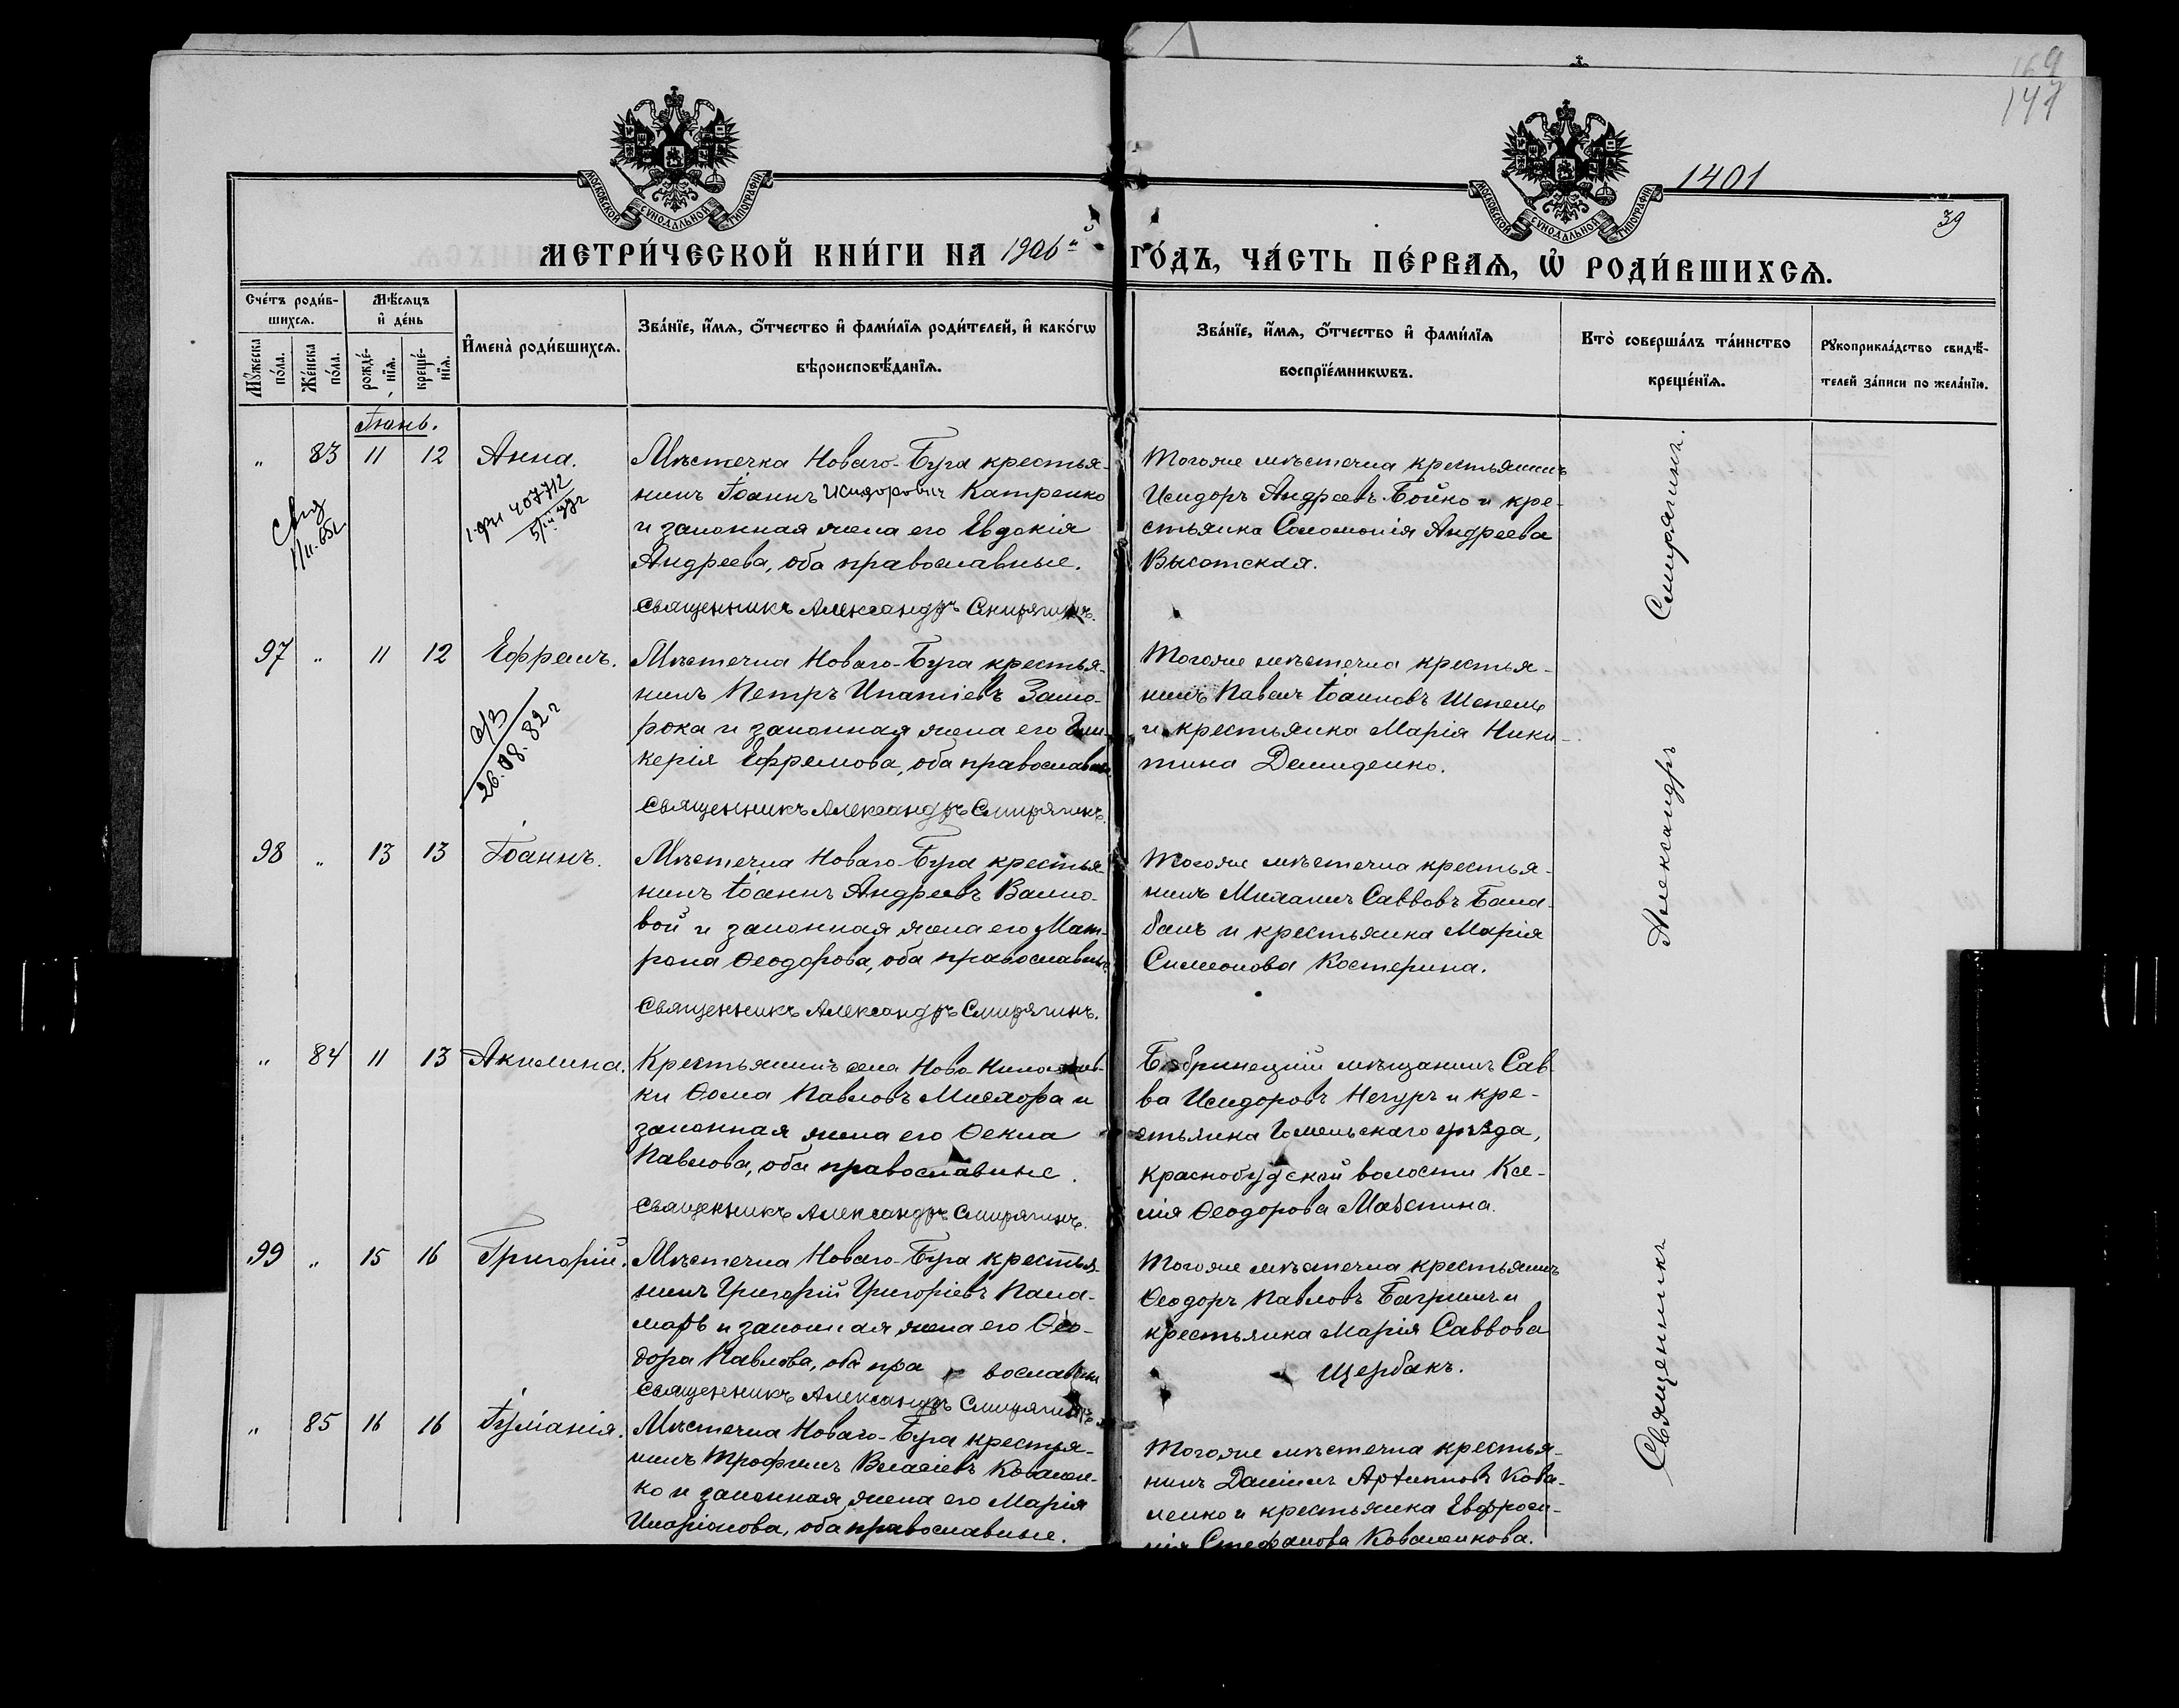 169
147
1401
39
МОСКОВСКОЙ СѴНОДАЛЬНОЙ ТИПОГРАФІИ
МОСКОВСКОЙ СѴНОДАЛЬНОЙ ТИПОГРАФІИ
МЕТРИ́ЧЕСКОЙ КНИ́ГИ НА 1906й ГО́ДЪ, ЧА́СТЬ ПЕ́РВАѦ, Ѡ҆ РОДИ́ВШИХСѦ.
Сче́тъ роди́в-
шихсѧ.
Мѣ́сѧцъ
и҆ де́нь
Мꙋ́жеска по́ла.
Же́нска по́ла.
рожде́-
нїѧ.
креще́-
нїѧ.
И҆мена̀ роди́вшихсѧ.
Зва́нїе, и҆́мѧ, ѻ҆́тчество и҆ фами́лїѧ роди́телей, и҆ како́гѡ
вѣроисповѣ́данїѧ.
Зва́нїе, и҆́мѧ, ѻ҆́тчество и҆ фами́лїѧ
воспрїе́мникѡвъ.
Кто̀ соверша́лъ та́инство
креще́нїѧ.
Рꙋкоприкла́дство свидѣ́-
телей за́писи по жела́нїю.
Іюнь.
" 83 11 12 Анна.
Мѣстечка Новаго-Буга крестья-
нинъ Іоаннъ Исидоровъ Катренко
и законная жена его Евдокія
Андреева, оба православные.
Священникъ Александръ Смирягинъ.
Тогоже мѣстечка крестьянинъ
Исидоръ Андреевъ Бойко и кре-
стьянка Соломонія Андреева
Высотская.
97 " 11 12 Ефремъ.
26.08.82 г
Мѣстечка Новаго-Буга крестья-
нинъ Петръ Ипатіевъ Замо-
рока и законная жена его Гли-
керія Ефремова, оба православные
Священникъ Александръ Смирягинъ.
Тогоже мѣстечка крестья-
нинъ Павелъ Іоанновъ Шепель
и крестьянка Марія Ники-
тина Демиденко.
98 " 13 13 Іоаннъ.
Мѣстечка Новаго-Буга крестья-
нинъ Іоаннъ Андреевъ Вално-
вой и законная жена его Мат-
рона Ѳеодорова, оба православные
Священникъ Александръ Смирягинъ.
Тогоже мѣстечка крестья-
нинъ Михаилъ Саввовъ Бала-
банъ и крестьянка Марія
Симеонова Костерина.
" 84 11 13 Акилина.
Крестьянинъ села Ново-Николаев-
ки Ѳома Павловъ Мисхора и
законная жена его Ѳекла
Павлова, оба православные.
Священникъ Александръ Смирягинъ.
Бобринецкій мѣщанинъ Сав-
ва Исидоровъ Негуръ и кре-
стьянка Гомельскаго уѣзда,
Краснобудской волости Ксе-
нія Ѳеодорова
99 " 15 16 Григорій.
Мѣстечка Новаго-Буга крестья-
нинъ Григорій Григоріевъ Пала-
марь и законная жена его Ѳео-
дора Павлова, оба православные
Священникъ Александръ Смирягинъ.
Тогоже мѣстечка крестьянинъ
Ѳеодоръ Павловъ Багринъ и
крестьянка Марія Саввова
Щербакъ.
" 85 16 16 Іуліанія.
Мѣстечка Новаго-Буга крестья-
нинъ Трофимъ Власіевъ Ковален-
ко и законная жена его Марія
Иларіонова, оба православные.
Тогоже мѣстечка крестья-
нинъ Даніилъ Кова-
ленко и крестьянка Евфроси-
нія Стефанова Коваленкова.
Священникъ Александръ Смирягинъ.